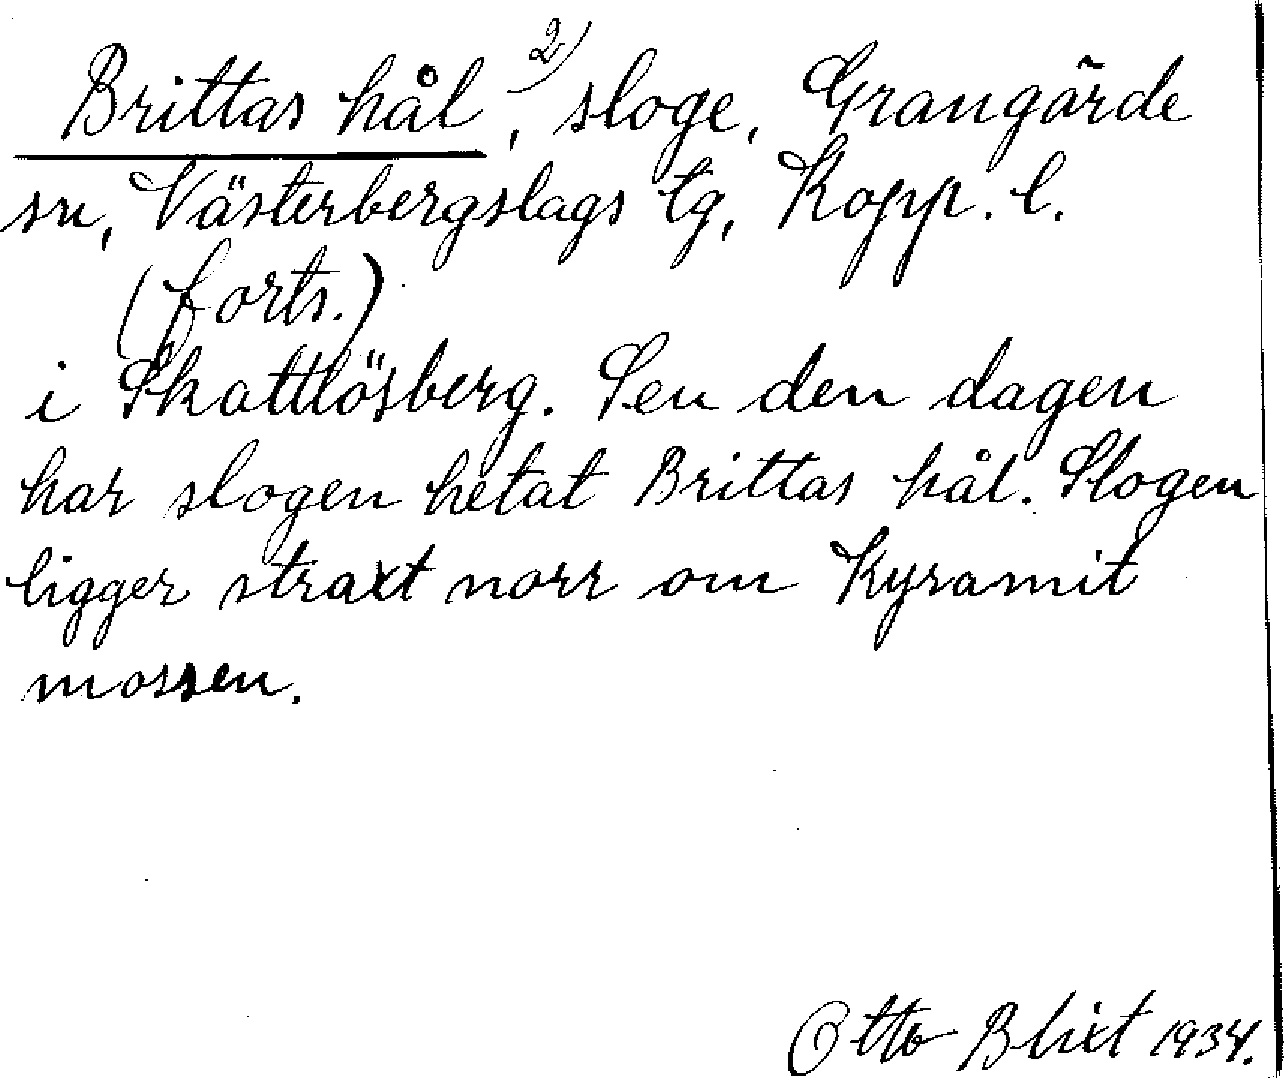 Brittas hål, 2) sloge, Grangärde
sn, Västerbergslags tg, Kopp. l.
(forts.)
i Skattlösberg. Sen den dagen
har slogen hetat Brittas hål. Slogen
ligger straxt norr om Kyramit
mossen.
Otto Blixt 1934.